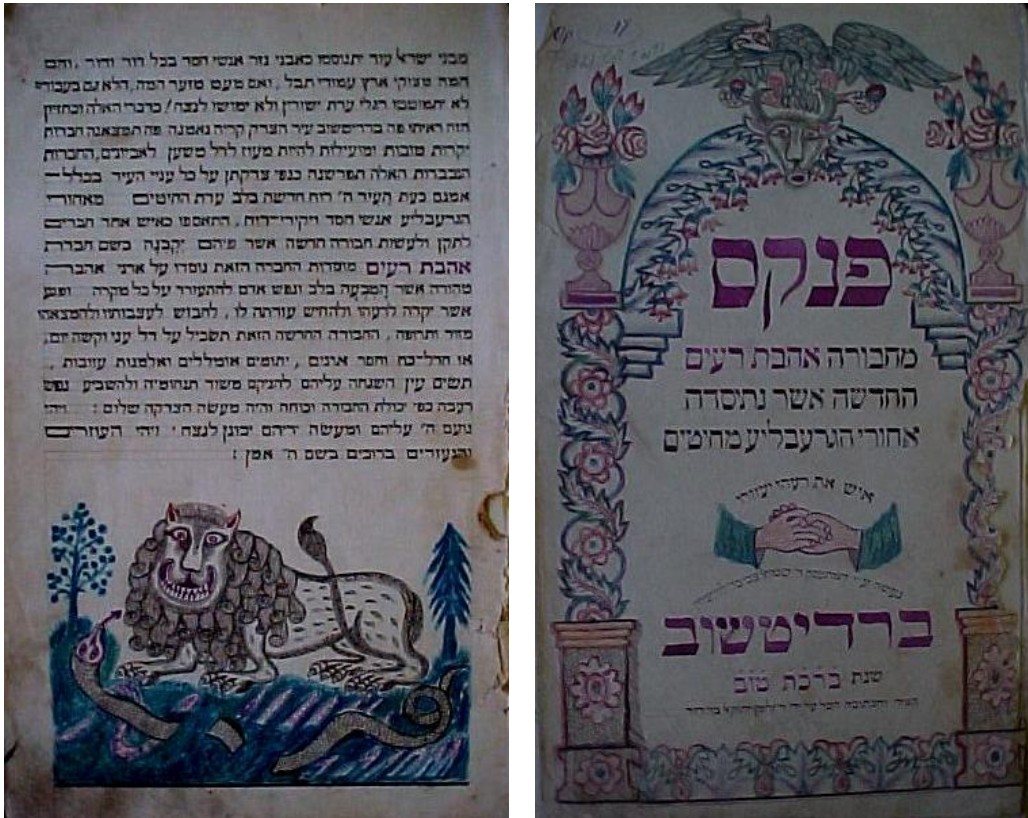 מבני ישראל עוד יתנוססו כאבני נזר אנשי חסד בכל דור ודור, והם
המה מצוקי ארץ עמודי תבל, ואם מעט מזער המה, הלא גם בעבורם
לא יתמוטטו רגלי עדת ישורין ולא ימושו לנצח! כדברי האלה וכחזיון
הזה ראיתי פה ברדיטשוב עיר הצדק קריה נאמנה פה תמצאנה חברות
יקרות טובות ומועילות להיות מעוז לדל משען לאביונים, החברות
הנכבדות האלה תפרשנה כנפי צדקתן על כל עניי העיר בכלל
אמנם כעת העיר ה' רוח חדשה בלב עדת החיטים מאחורי
הגרעבליע אנשי חסד ויקירי־רוח, התאספו כאיש אחד חברים
לתקן ולעשות חבורה חדשה אשר פיהם יקבנה בשם חברת
אהבת רעים מוסדות החברה הזאת נוסדו על אדני אהבה
טהורה אשר הטבעה בלב ונפש אדם להתעורר על כל מקרה ופגע
אשר יקרה לרעהו ולהחיש עזרתה לו, לחבוש לעצבותיו ולהמציא
מזור ותרופה, החבורה החדשה הזאת תשכיל על דל עני וקשה יום,
או חדל־כח וחסר אונים, יתומים אומללים ואלמנות עזובות,
תשים עין השגחה עליהם להניקם משוד תנחומיה ולהשביע נפש
רעבה כפי יכולת החבורה וכוחה והיה מעשה הצדקה שלום: ויהי
נועם ה' עליהם ומעשה ידיהם יכונן לנצח! ויהי העוזרים
והנעזרים ברוכים בשם ה' אמן:
פנקס
מחבורה אהבת רעים
החדשה אשר נתיסדה
אחורי הגרעבליע מחיטים
איש את רעהו יעזורו
ברדיטשוב
שנת ברכת טוב